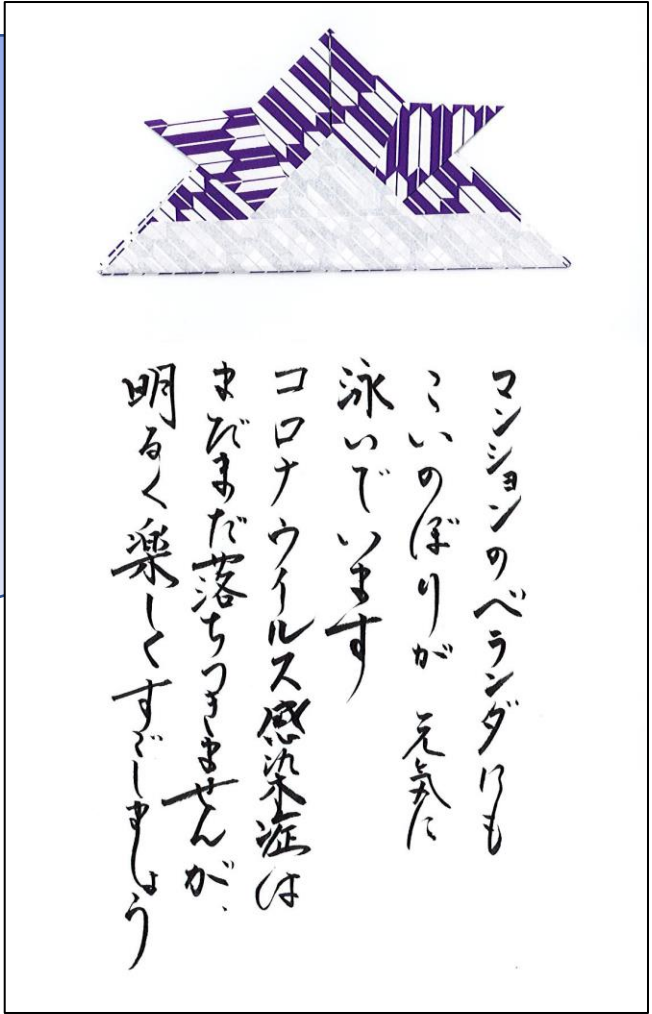 マンションのベランダにも
こいのぼりが 元気に
泳いでいます
コロナウイルス感染症は
まだまだ落ちつきませんが、
明るく楽しくすごしましょう